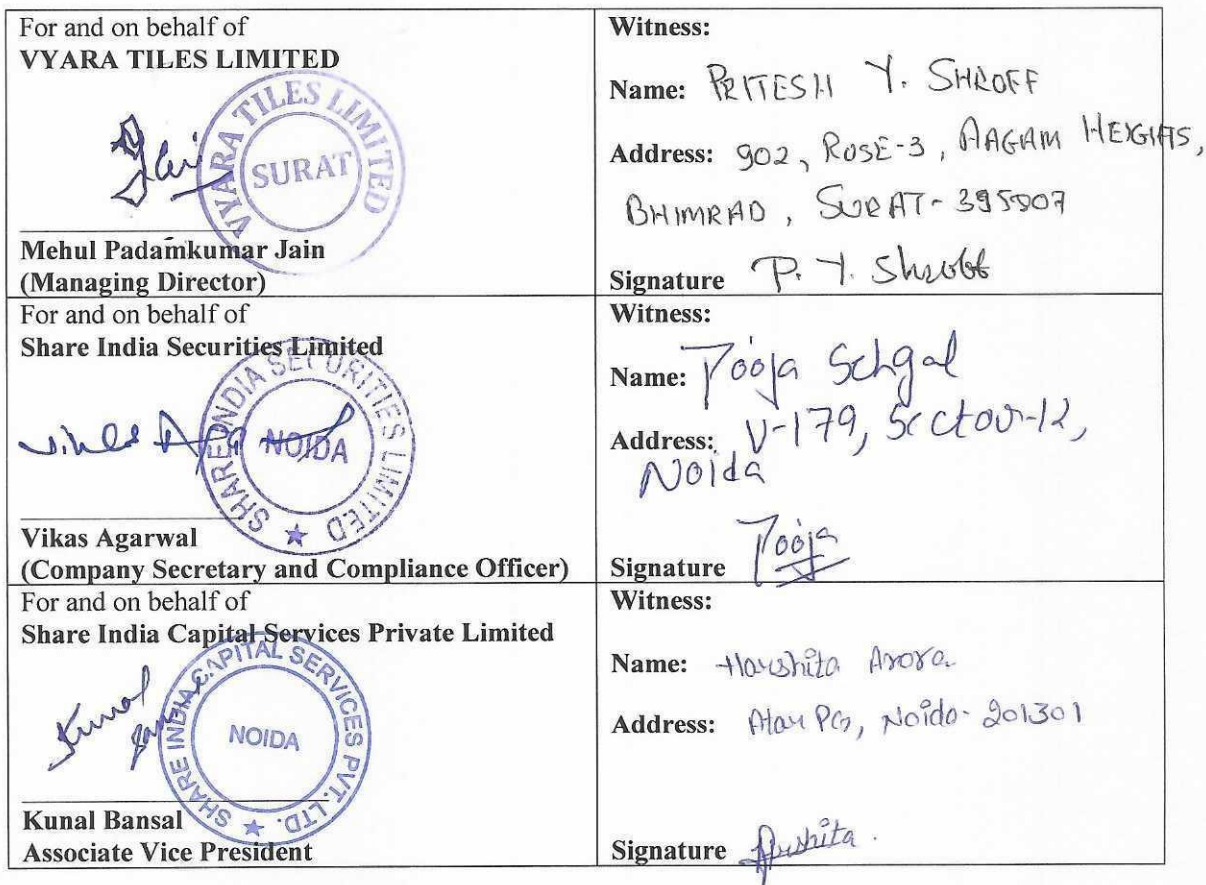 For and on behalf of
VYARA TILES LIMITED
VYARA TILES LIMITED
SURAT
Mehul Padamkumar Jain
(Managing Director)
Witness:
Name: PRITESH Y. SHROFF
Address: 902, ROSE-3, AAGAM HEIGHTS,
BHIMRAD, SURAT-395007
Signature P. Y. Shroff
For and on behalf of
Share India Securities Limited
SHARE INDIA SECURITIES LIMITED
NOIDA
Vikas Agarwal
(Company Secretary and Compliance Officer)
Witness:
Name: Pooja Sehgal
Address: V-179, Sector-12,
Noida
Signature Pooja
For and on behalf of
Share India Capital Services Private Limited
SHARE INDIA CAPITAL SERVICES PVT. LTD.
NOIDA
Kunal
Kunal Bansal
Associate Vice President
Witness:
Name: Harshita Arora
Address: PG, Noida-201301
Signature